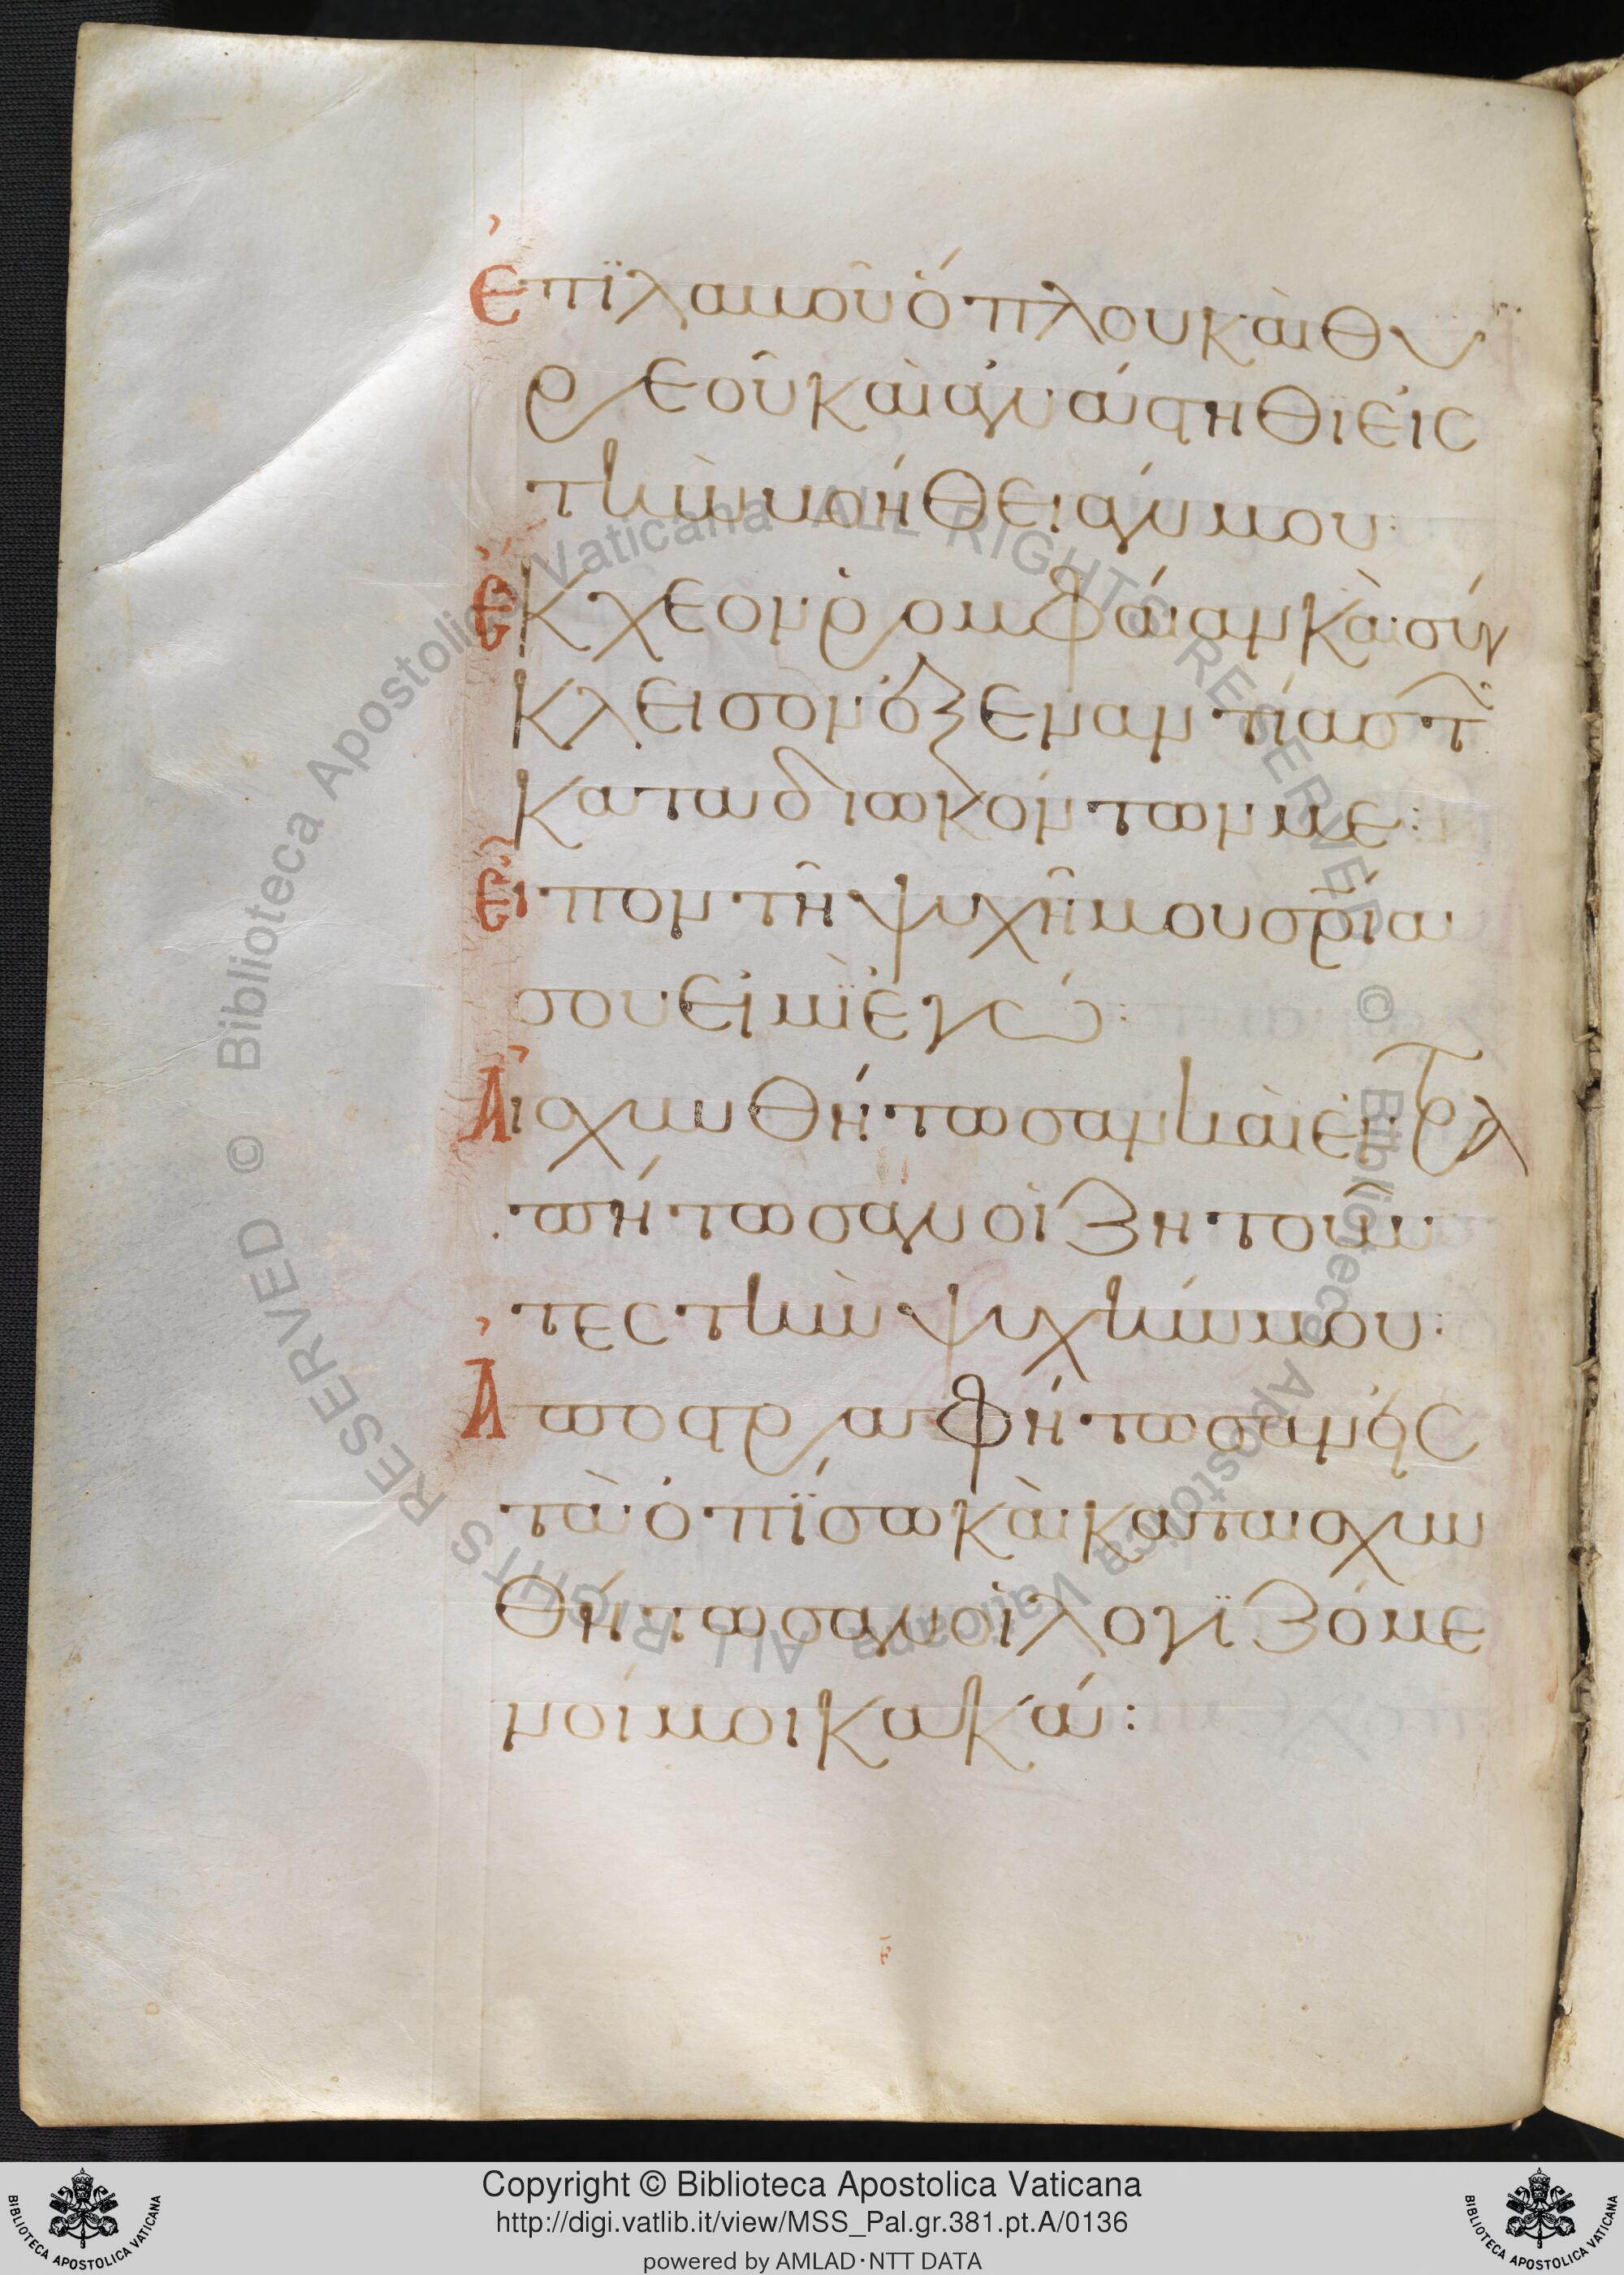 Ἐπϊλαβοῦ ὅπλου καὶ θυ
ρεοῦ καὶ ἀνάστηθϊ εἰς
τὴν βοήθειάν μου:
Ἔκχεον ῥομφαίαν καὶ σύγ
κλεισον ἐξεναντίας τῶν
καταδιωκόντων με:
Εἶπον τῆ ψυχῆ μου σρία
σου εἰμὶ ἐγώ:
Αἰσχυνθήτωσαν καὶ ἐντρα
πήτωσαν οἱ ζητοῦν
τες τὴν ψυχήν μου:
Ἀποστραφήτωσαν εἰς
τὰ ὀπϊσω καὶ καταισχυν
θήτωσαν οἱ λογϊζόμε
νοί μοι κακά:
Copyright © Biblioteca Apostolica Vaticana
http://digi.vatlib.it/view/MSS_Pal.gr.381.pt.A/0136
powered by AMLAD·NTT DATA
BIBLIOTECA APOSTOLICA VATICANA
BIBLIOTECA APOSTOLICA VATICANA
© Biblioteca Apostolica Vaticana ALL RIGHTS RESERVED
© Biblioteca Apostolica Vaticana ALL RIGHTS RESERVED